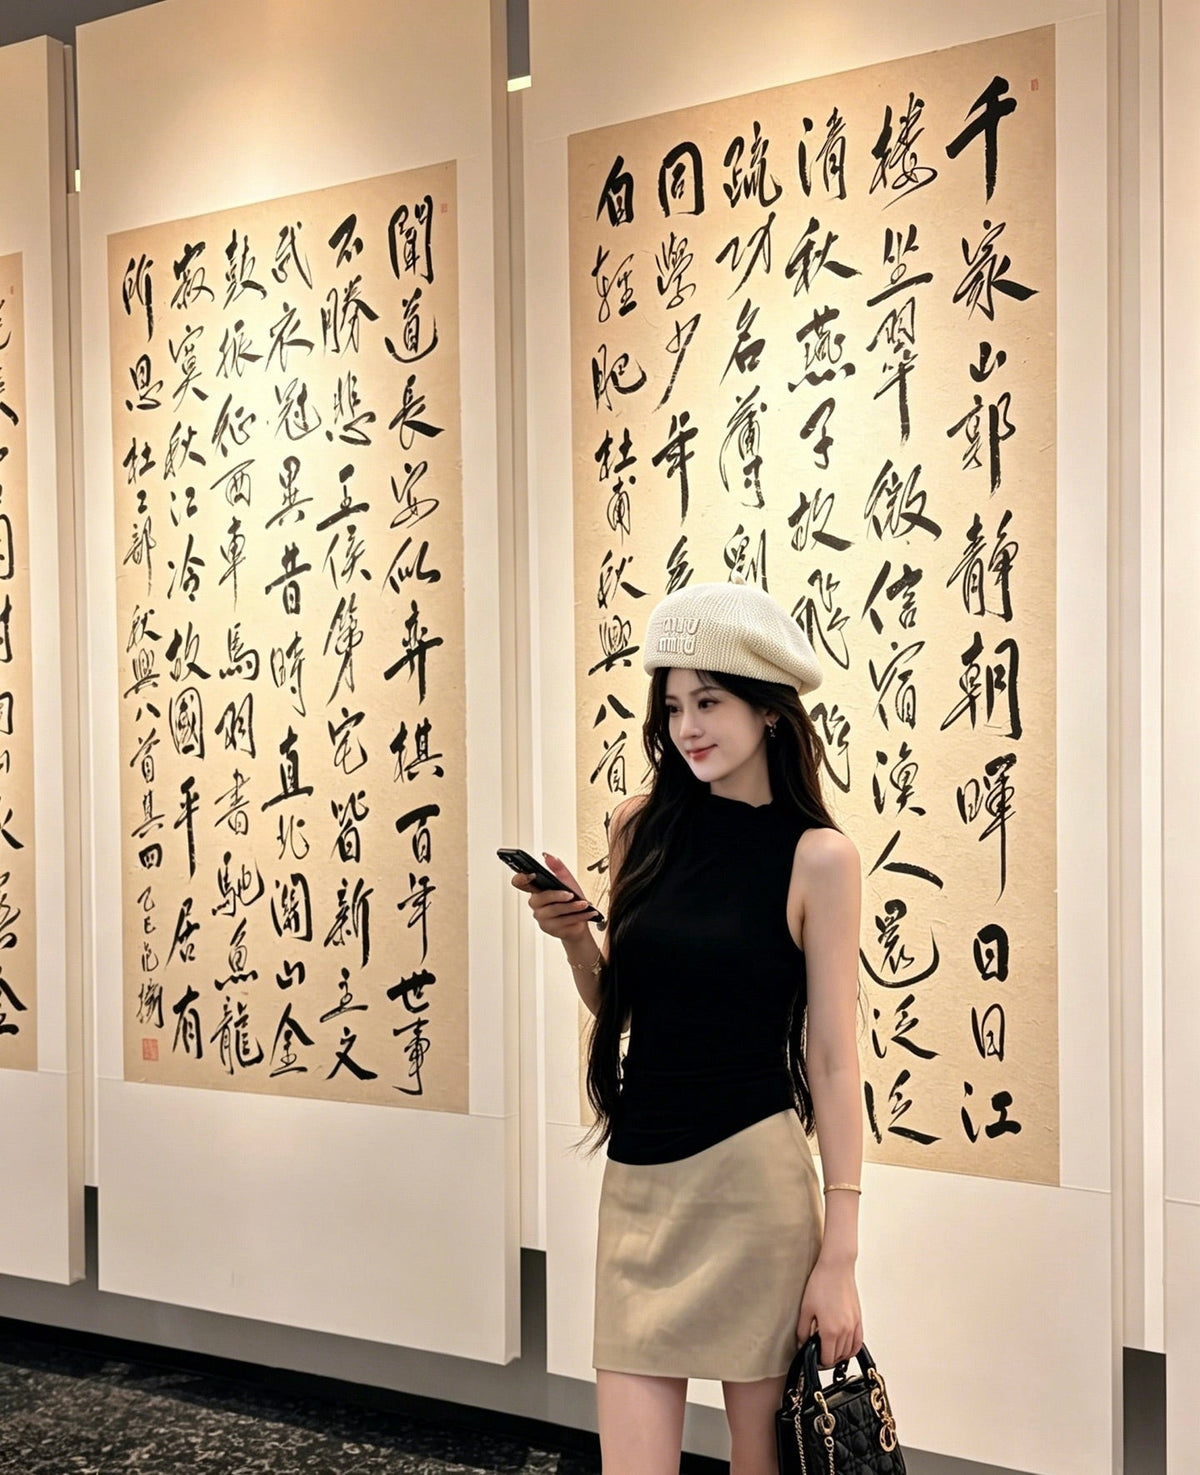 千家山郭靜朝暉日日江
樓坐翠微信宿漁人還泛泛
清秋燕子故飛飛
疏功名薄劉
同學少年多
自輕肥杜甫秋興八首
聞道長安似弈棋百年世事
不勝悲王侯第宅皆新主文
武衣冠異昔時直北關山金
鼓振征西車馬羽書馳魚龍
寂寞秋江冷故國平居有
所思杜工部秋興八首其四乙巳
miu
miu